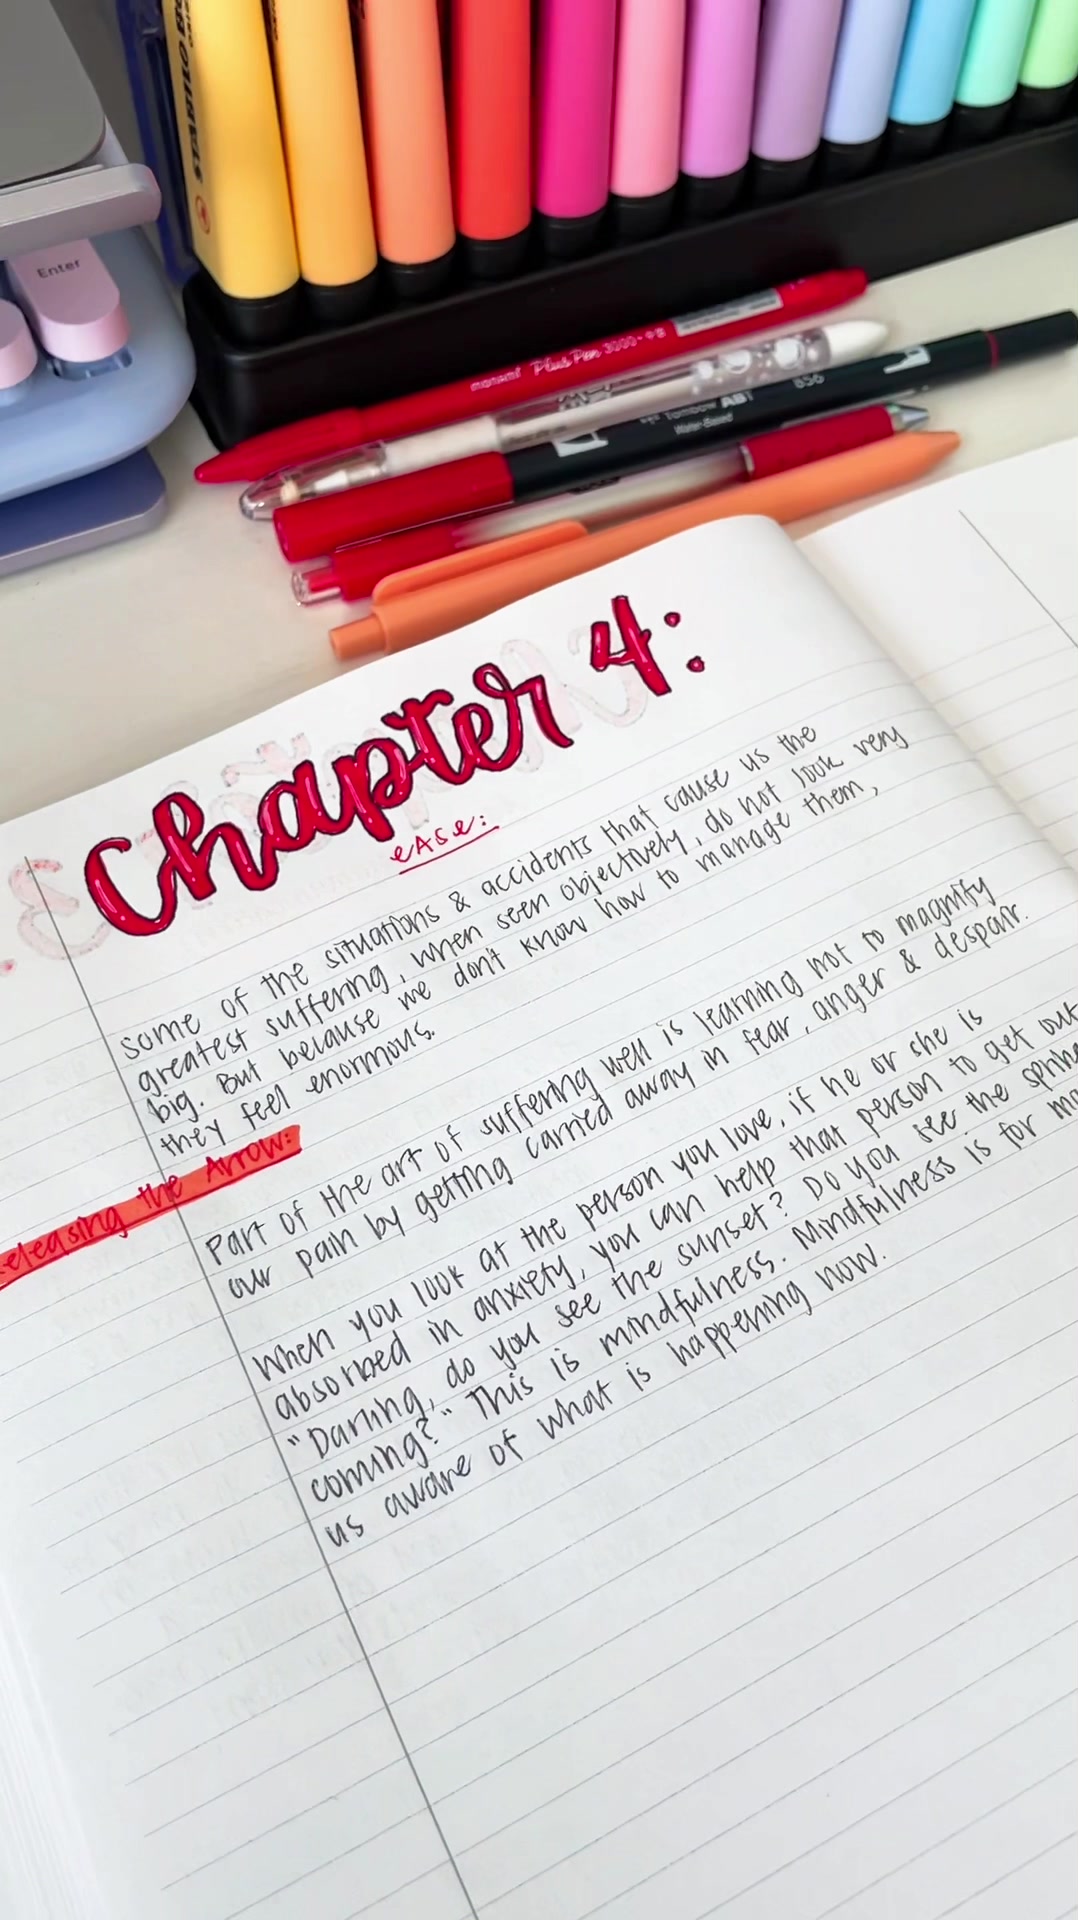 STABILO BO
Enter
monami Plus Pen 3000
Tombow ABT
856
Water-Based
Chapter 4:
EASE:
some of the situations & accidents that cause us the
greatest suffering, when seen objectively, do not look very
big. But because we don't know how to manage them,
they feel enormous.
Releasing the Arrow:
Part of the art of suffering well is learning not to magnify
our pain by getting carried away in fear, anger & despair.
When you look at the person you love, if he or she is
absorbed in anxiety, you can help that person to get out
"Darling, do you see the sunset? Do you see the spring
coming?" This is mindfulness. Mindfulness is for ma
us aware of what is happening now.